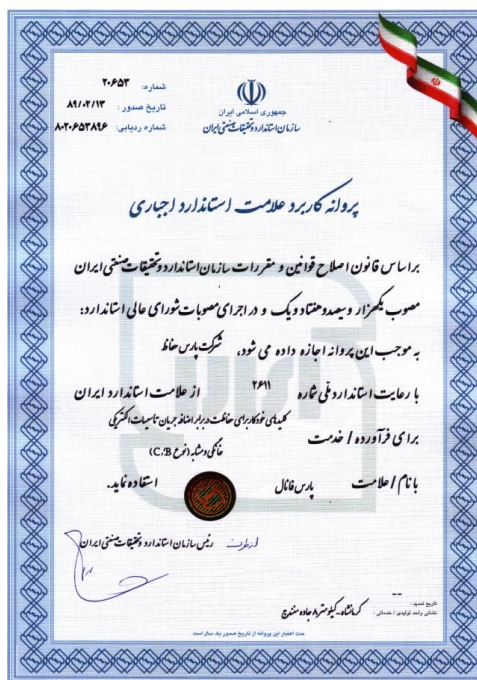 شماره: ۲۰۶۵۳
تاریخ صدور: ۸۹/۰۲/۱۳
شماره ردیابی: ۸۰۲۰۶۵۳۸۹۶
جمهوری اسلامی ایران
سازمان استاندارد و تحقیقات صنعتی ایران
پروانه کاربرد علامت استاندارد اجباری
براساس قانون اصلاح قوانین و مقررات سازمان استاندارد و تحقیقات صنعتی ایران
مصوب یکهزار و سیصد و هفتاد و یک و در اجرای مصوبات شورای عالی استاندارد:
به موجب این پروانه اجازه داده می شود، شرکت پارس حفاظ
با رعایت استاندارد ملّی شماره ۲۶۱۱ از علامت استاندارد ایران
کلیدهای خودکار برای حفاظت در برابر اضافه جریان تاسیسات الکتریکی
برای فرآورده / خدمت
خانگی و مشابه (نوع C,B)
با نام / علامت پارس فانال استفاده نماید.
از طرف رئیس سازمان استاندارد و تحقیقات صنعتی ایران
تاریخ تمدید: --
نشانی واحد تولیدی / خدماتی: کرمانشاه-کیلومتر ۸ جاده سنندج
مدت اعتبار این پروانه از تاریخ صدور یک سال است